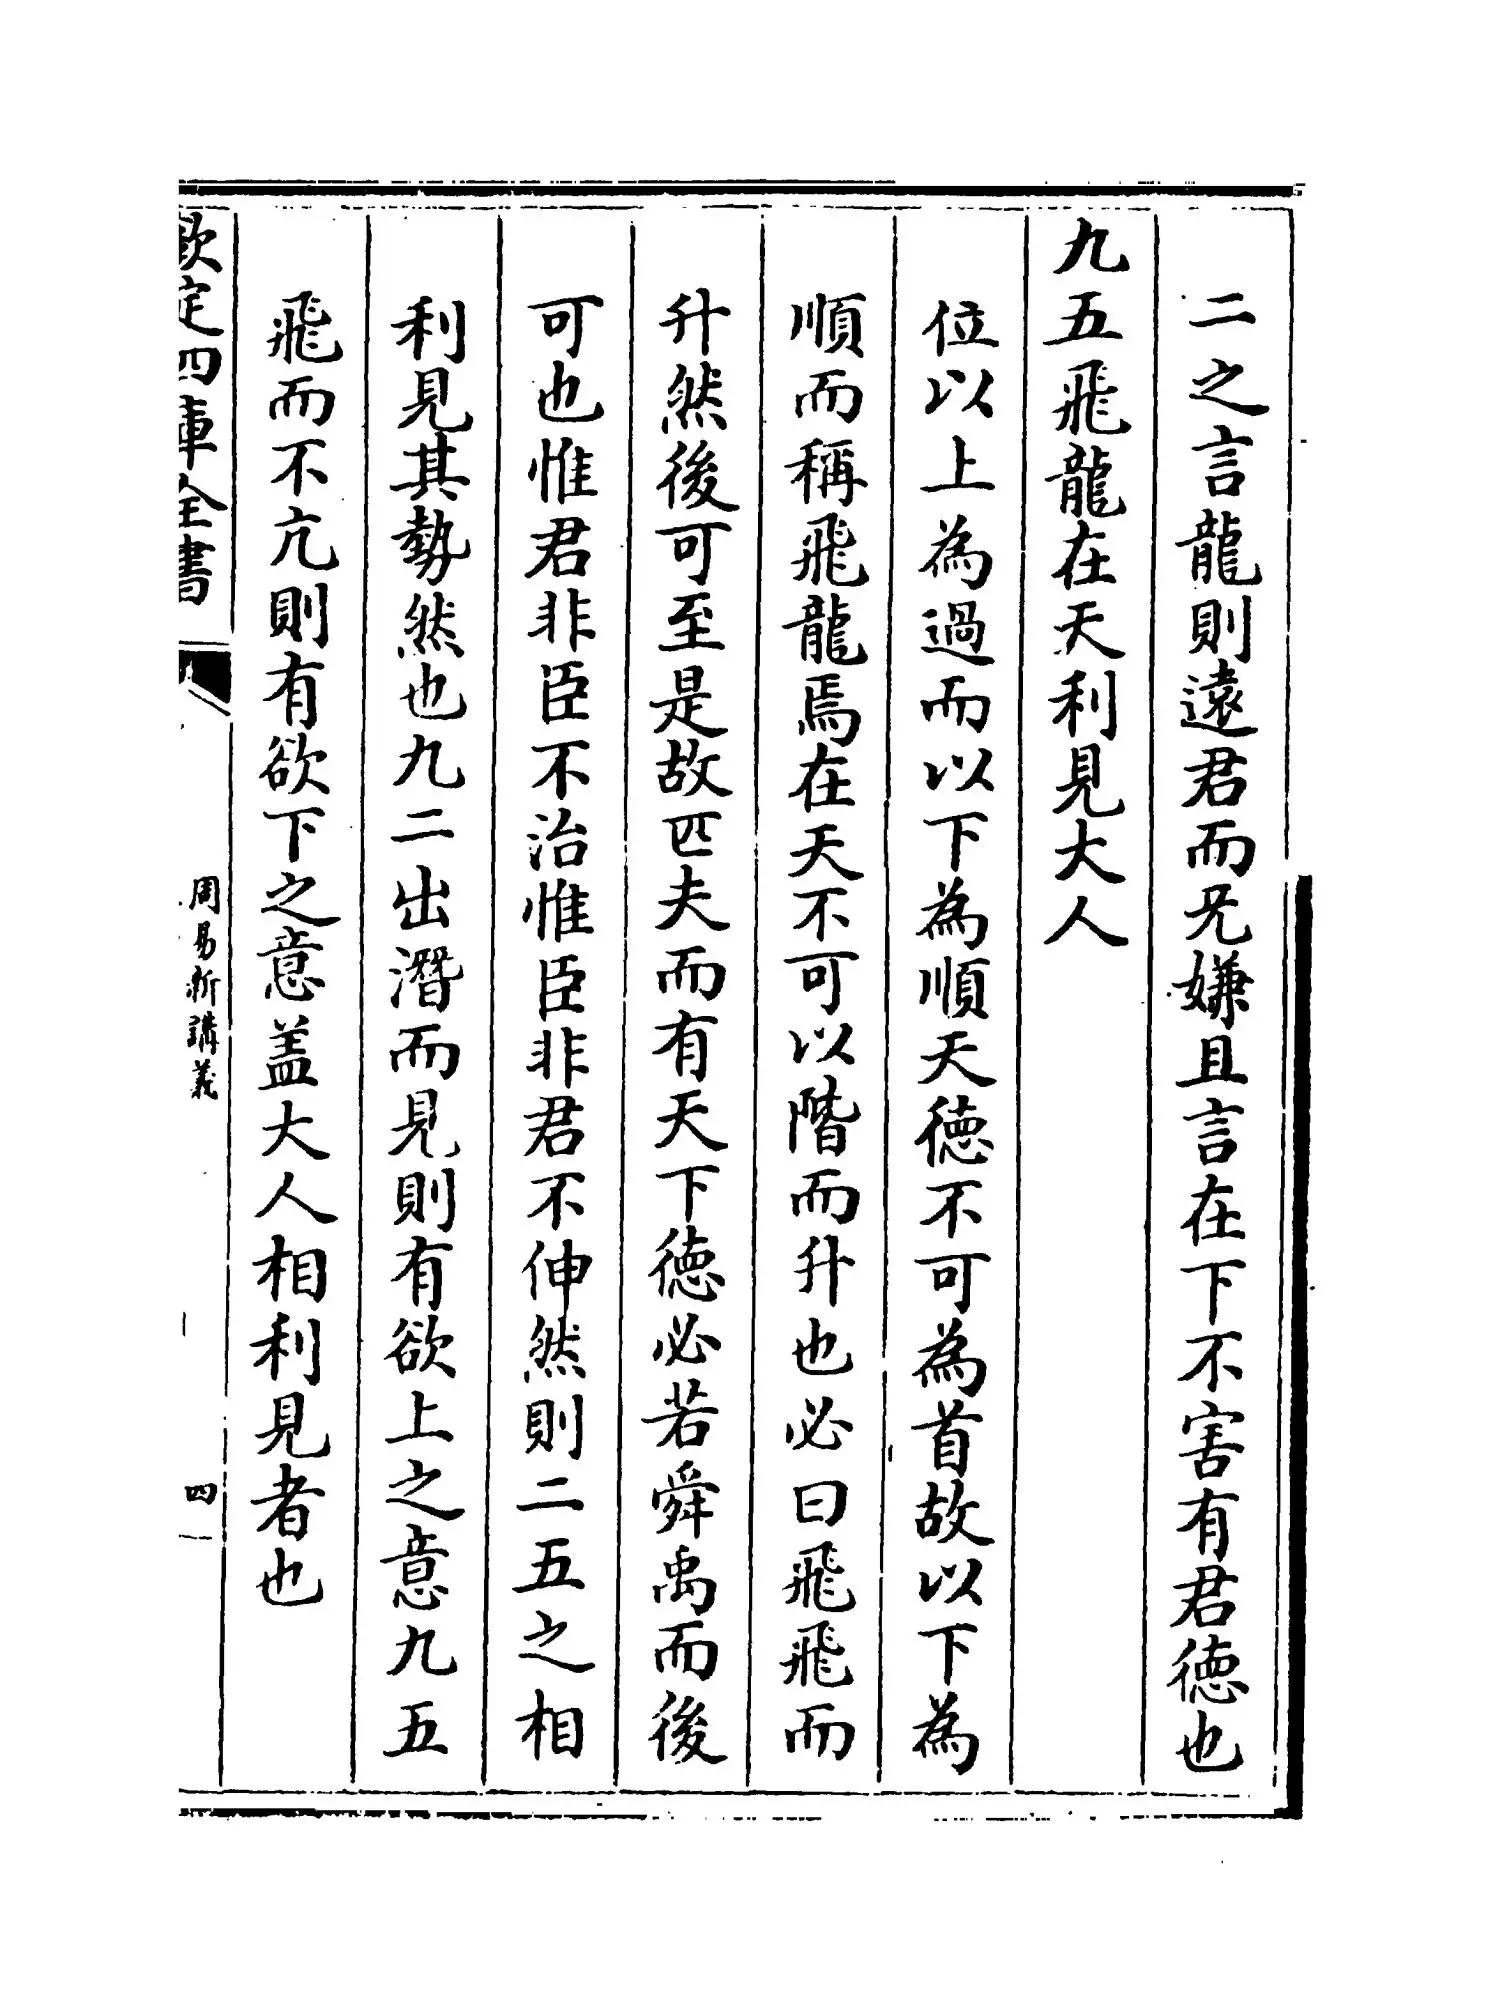 二之言龍則遠君而旡嫌且言在下不害有君徳也
九五飛龍在天利見大人
位以上為過而以下為順天徳不可為首故以下為
順而稱飛龍焉在天不可以階而升也必曰飛飛而
升然後可至是故匹夫而有天下徳必若舜禹而後
可也惟君非臣不治惟臣非君不伸然則二五之相
利見其勢然也九二出潛而見則有欲上之意九五
飛而不亢則有欲下之意盖大人相利見者也
欽定四庫全書
周易新講義
四